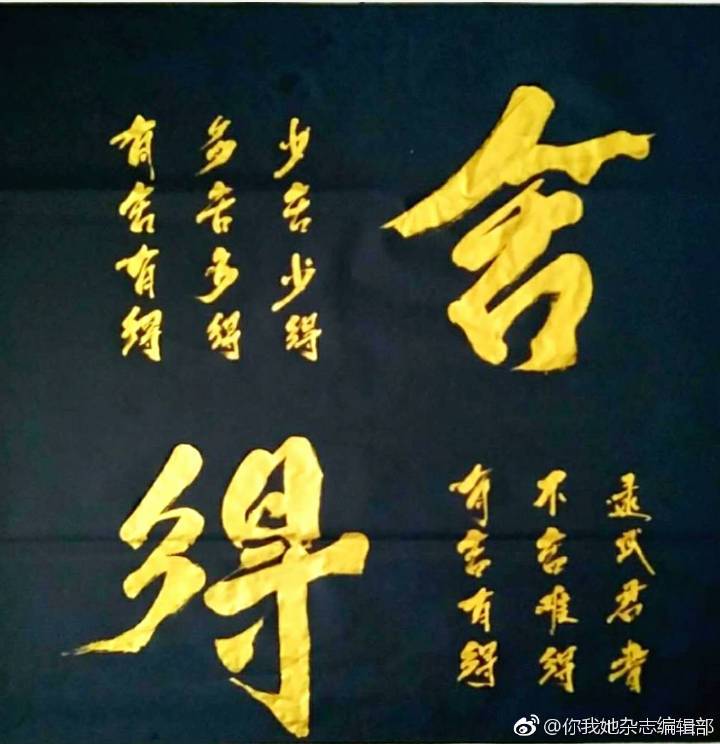 舍
少舍少得
多舍多得
有舍有得
武君書
不舍难得
有舍有得
得
@你我她杂志编辑部